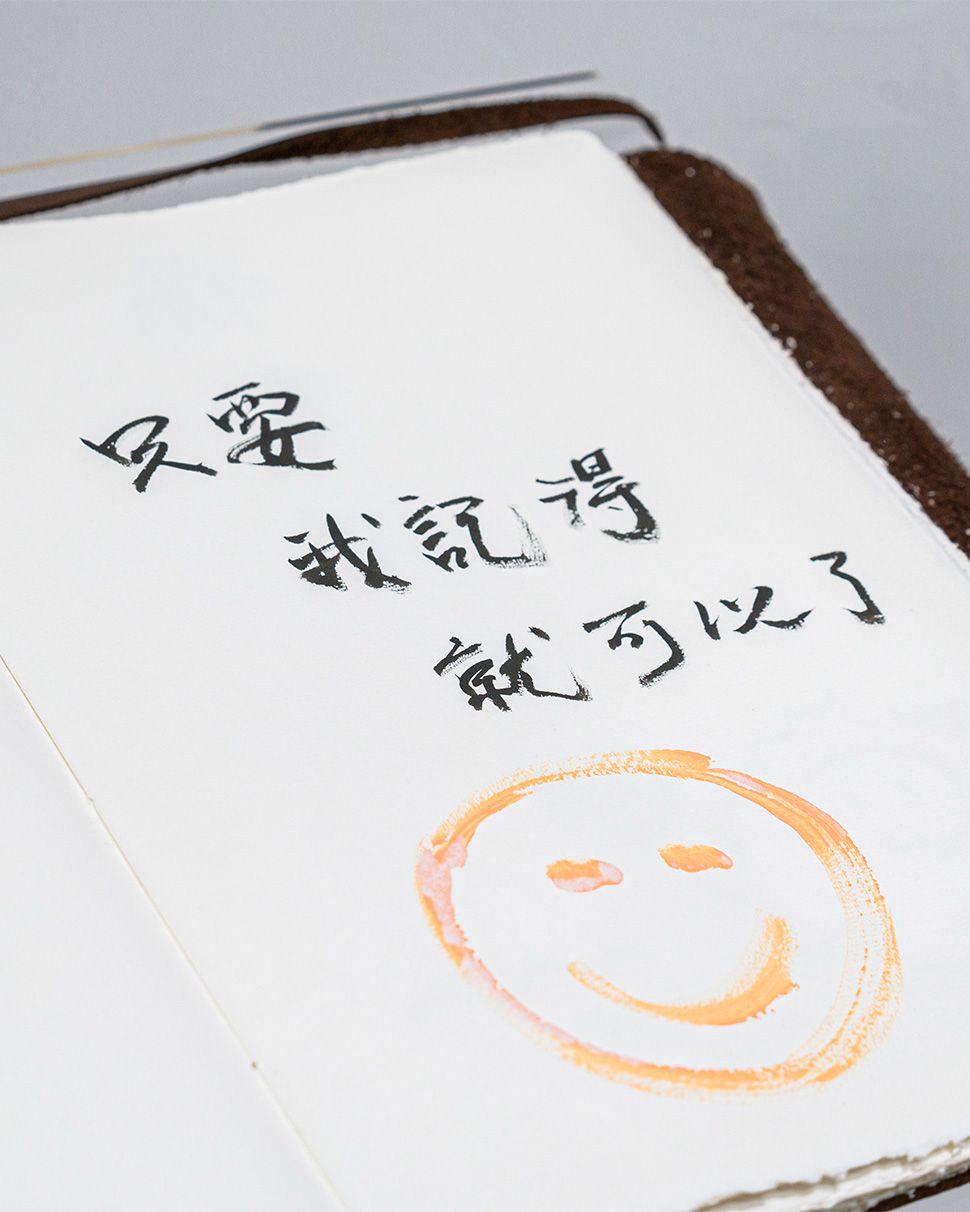 只要
我記得
就可以了